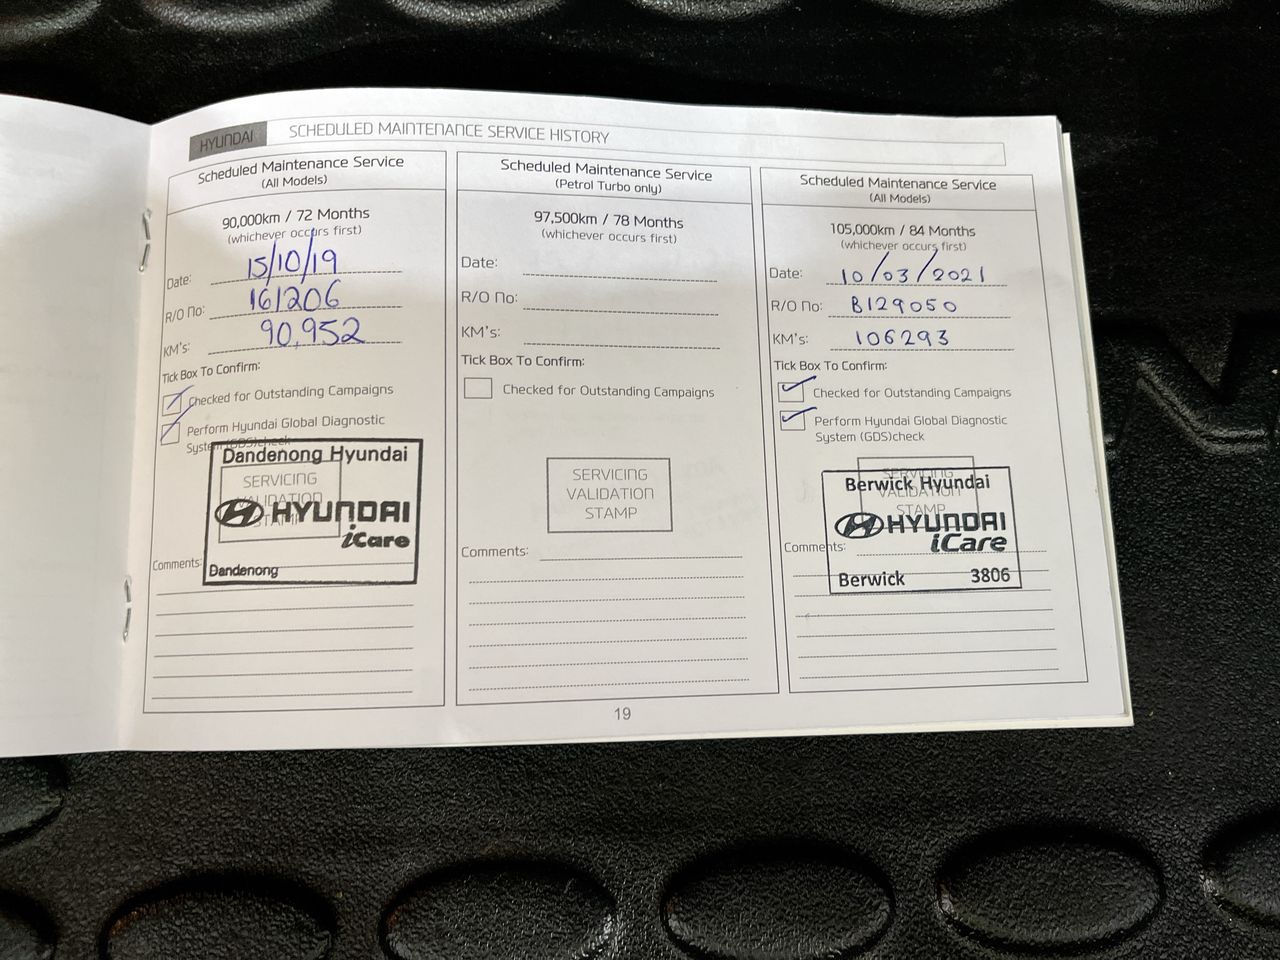 HYUNDAI SCHEDULED MAINTENANCE SERVICE HISTORY
Scheduled Maintenance Service
(All Models)
90,000km / 72 Months
(whichever occurs first)
Date: 15/10/19
R/O No: 161206
KM's: 90,952
Tick Box To Confirm:
Checked for Outstanding Campaigns
Perform Hyundai Global Diagnostic
System (GDS)check
Dandenong Hyundai
SERVICING
VALIDATION
STAMP
HYUNDAI
iCare
Comments:
Dandenong
Scheduled Maintenance Service
(Petrol Turbo only)
97,500km / 78 Months
(whichever occurs first)
Date:
R/O No:
KM's:
Tick Box To Confirm:
Checked for Outstanding Campaigns
SERVICING
VALIDATION
STAMP
Comments:
Scheduled Maintenance Service
(All Models)
105,000km / 84 Months
(whichever occurs first)
Date: 10/03/2021
R/O No: B129050
KM's: 106293
Tick Box To Confirm:
Checked for Outstanding Campaigns
Perform Hyundai Global Diagnostic
System (GDS)check
SERVICING
Berwick Hyundai
VALIDATION
STAMP
HYUNDAI
iCare
Comments:
Berwick 3806
19